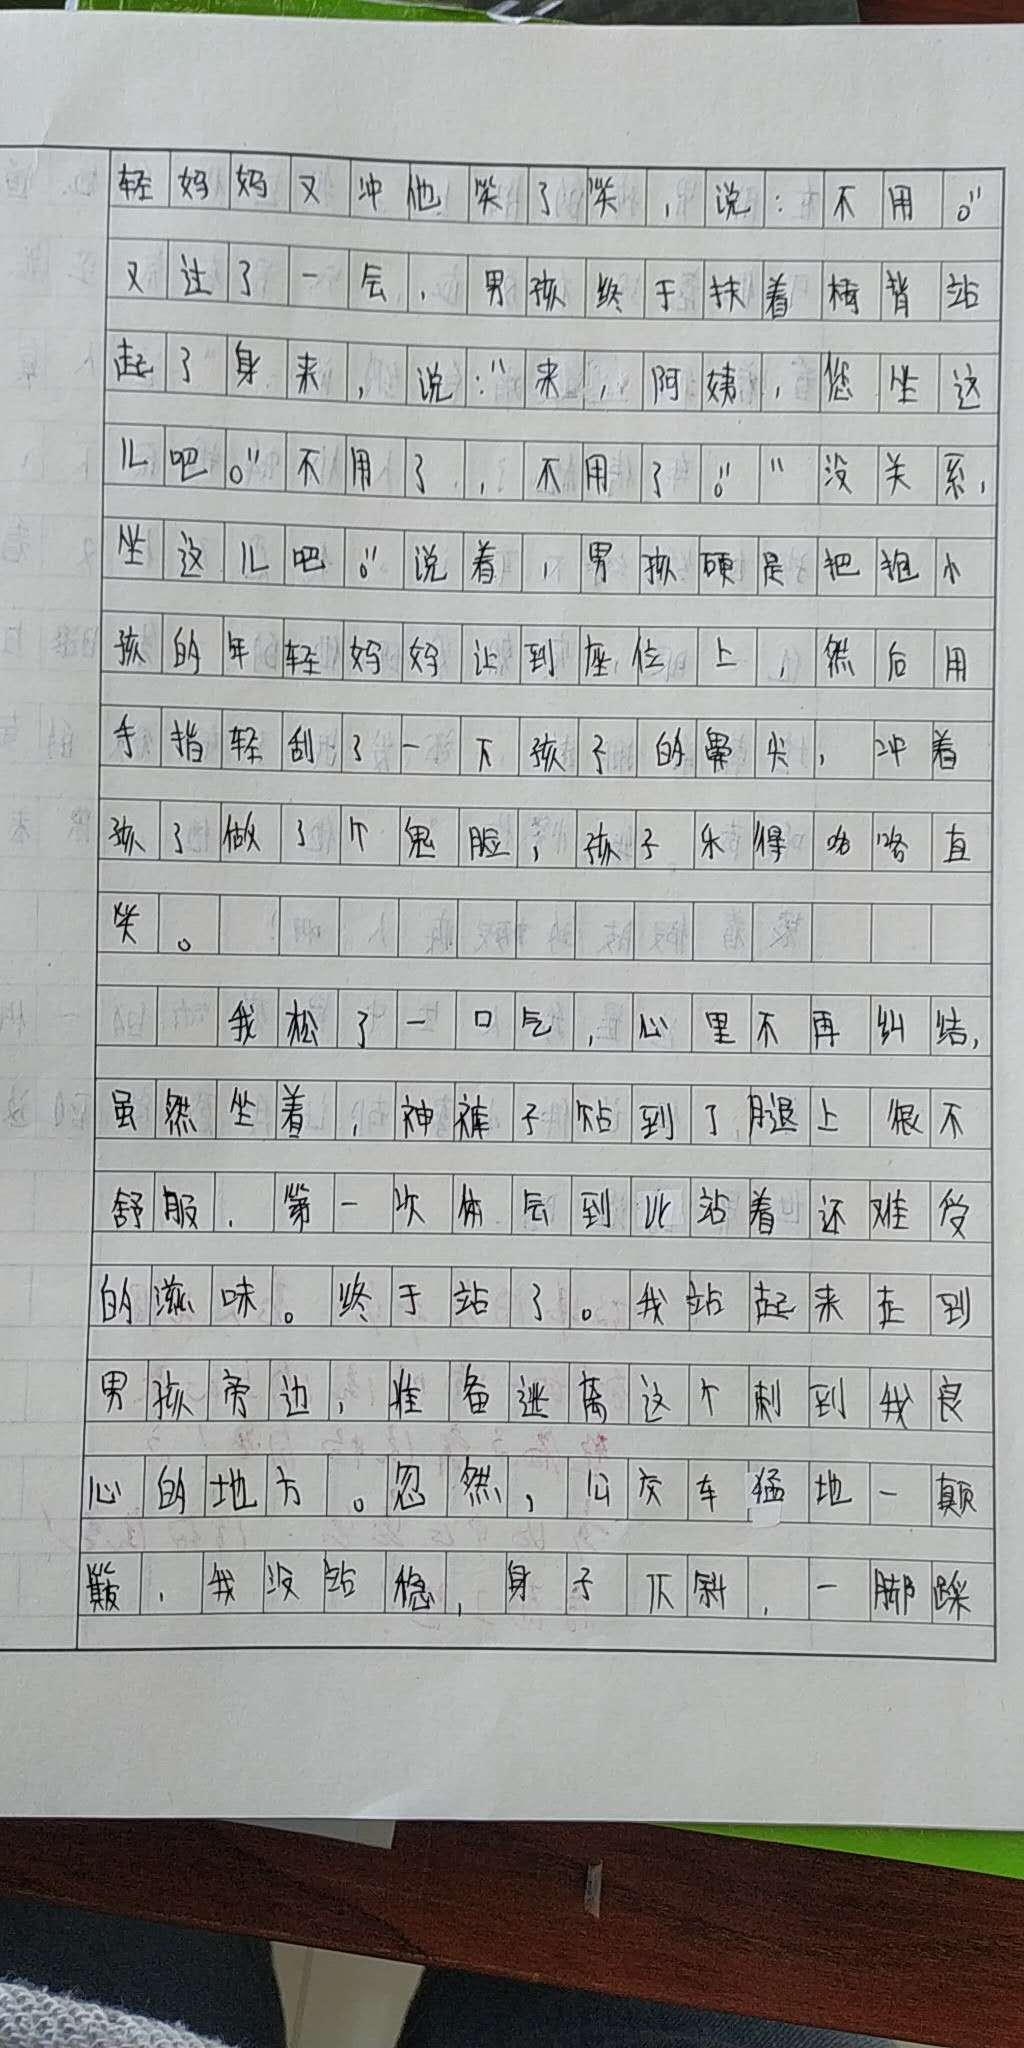 轻妈妈又冲他笑了笑，说：不用。”
又过了一会，男孩终于扶着椅背站
起了身来，说：“来，阿姨，您坐这
儿吧。”不用了，不用了。”“没关系，
坐这儿吧。”说着，男孩硬是把抱小
孩的年轻妈妈让到座位上，然后用
手指轻刮了一下孩子的鼻尖，冲着
孩子做了个鬼脸，孩子乐得咯咯直
笑。
我松了一口气，心里不再纠结，
虽然坐着，裤子粘到了腿上很不
舒服，第一次体会到比站着还难受
的滋味。终于站了。我站起来走到
男孩旁边，准备逃离这个刺到我良
心的地方。忽然，公交车猛地一颠
簸，我没站稳，身子仄斜，一脚踩